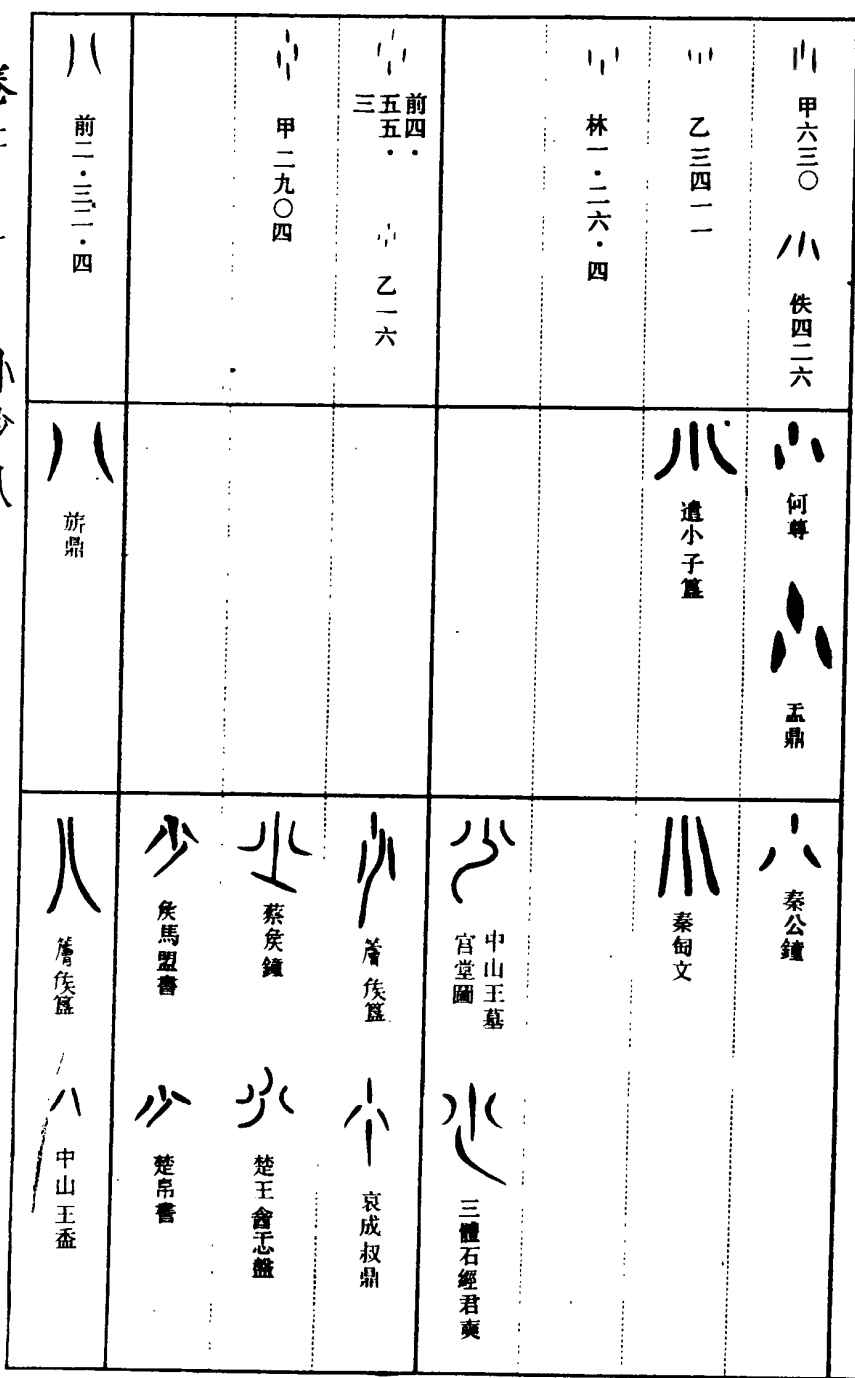 甲六三〇
佚四二六
乙三四一一
林一·二六·四
前四·五五·三
乙一六
甲二九〇四
前二·三二·四
何尊
盂鼎
遣小子簋
旂鼎
秦公鐘
秦匋文
中山王墓宮堂圖
三體石經君奭
蔡侯鐘
哀成叔鼎
楚王酓忎盤
侯馬盟書
楚帛書
中山王壺
卷二
小少八